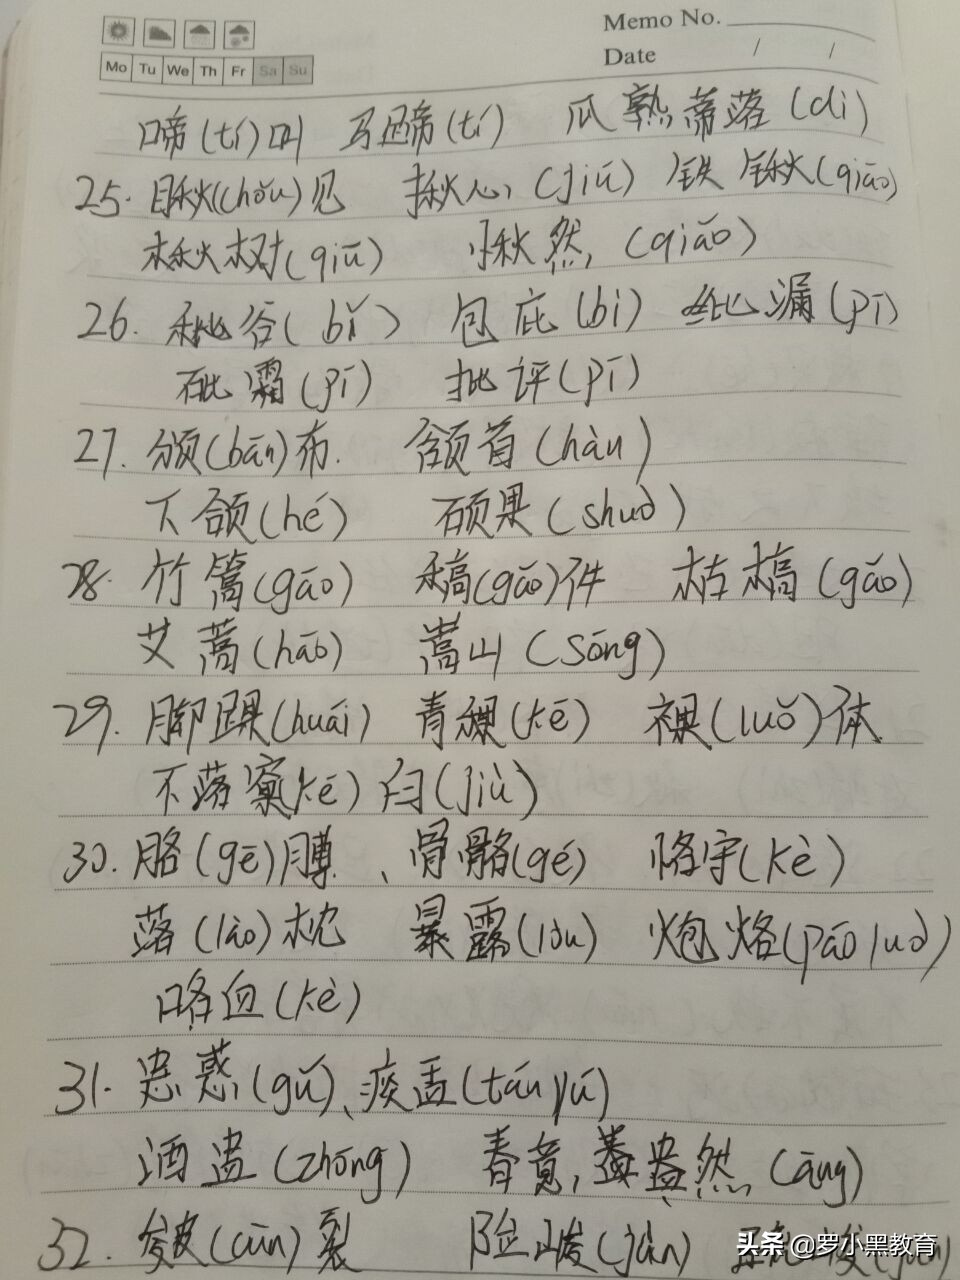 Memo No.
Mo Tu We Th Fr Sa Su
Date / /
啼(tí)叫 马蹄(tí) 瓜熟蒂落(dì)
25. 瞅(chǒu)见 揪心(jiū) 铁锹(qiāo)
楸树(qiū) 愀然(qiǎo)
26. 秕谷(bǐ) 包庇(bì) 纰漏(pī)
砒霜(pī) 批评(pī)
27. 颁(bān)布. 颔首(hàn)
下颌(hé) 硕果(shuò)
28. 竹篙(gāo) 稿(gǎo)件 枯槁(gǎo)
艾蒿(hāo) 嵩山(sōng)
29. 脚踝(huái) 青稞(kē) 裸(luǒ)体
不落窠(kē)臼(jiù)
30. 胳(gē)膊、骨骼(gé) 恪守(kè)
落(lào)枕 暴露(lòu) 炮烙(páo luò)
咯血(kè)
31. 蛊惑(gǔ)、痰盂(tán yú)
酒盅(zhōng) 春意盎然(àng)
32. 皲(cūn)裂 险峻(jùn)
头条 @罗小黑教育